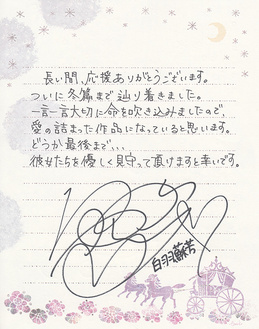 長い間、応援ありがとうございます。
ついに冬篇まで辿り着きました。
一言一言大切に命を吹き込みましたので、
愛の詰まった作品になっていると思います。
どうか最後まで、、、
彼女たちを優しく見守って頂けますと幸いです。